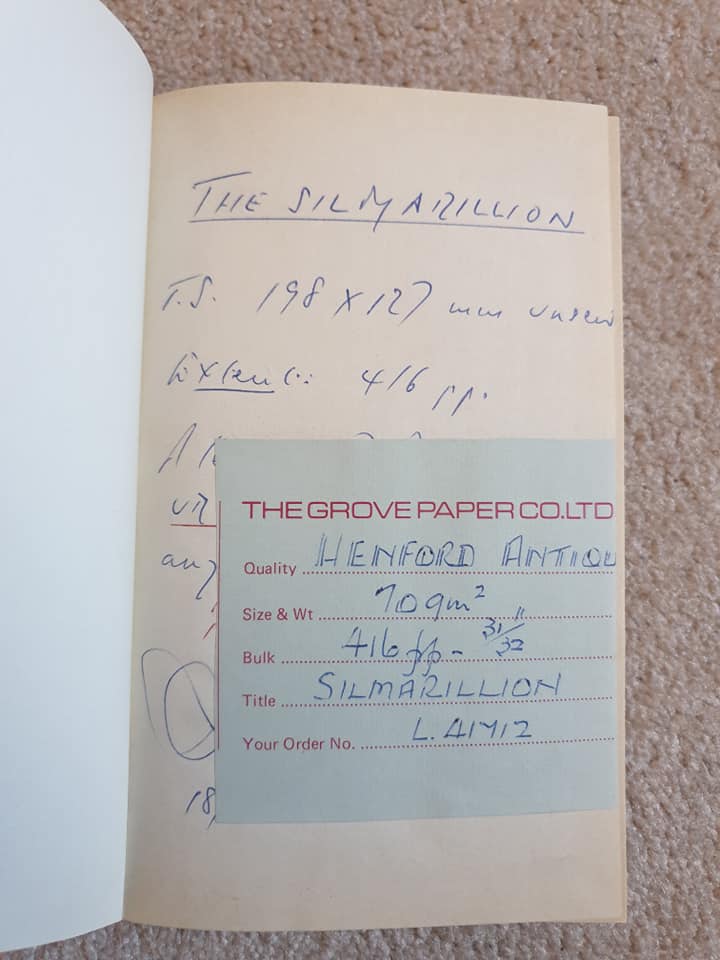 THE SILMARILLION
T.S. 198 X 127 mm
Extent: 416 pp.
THE GROVE PAPER CO. LTD
Quality HENFORD ANTIQU
Size & Wt 70 gm²
Bulk 416 pp - 31/32"
Title SILMARILLION
Your Order No.
18